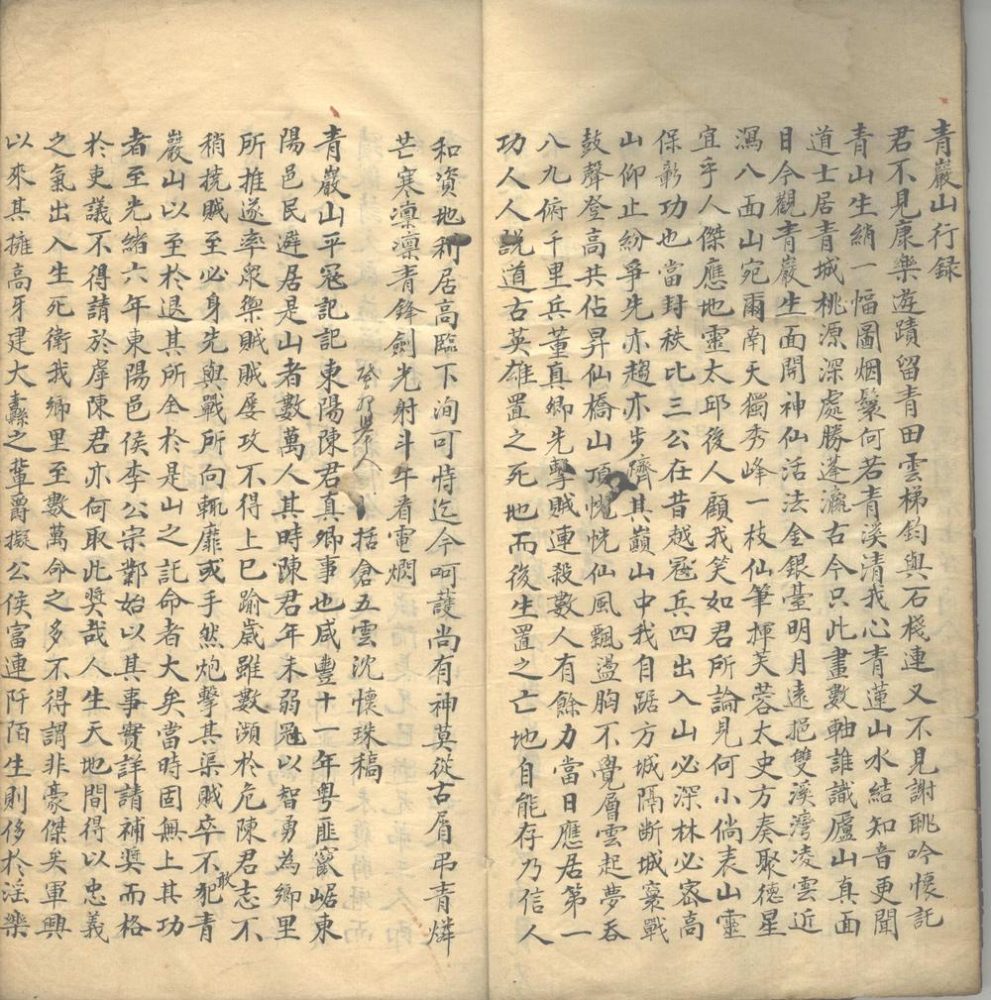 青巖山行録
君不見康樂遊蹟留青田雲梯鈞與石棧連又不見謝眺吟懷託
青山生綃一幅圖烟鬟何若青溪清我心青蓮山水結知音更聞
道士居青城桃源深處勝蓬瀛古今只此畫數軸誰識廬山真面
日今觀青巖生面開神仙活法金銀臺明月遠挹雙溪灣凌雲近
瀉八面山宛爾南天獨秀峰一枝仙筆揮芙蓉太史方奏聚德星
宜乎人傑應地靈太邱後人顧我笑如君所論見何小倘表山靈
保彰功也當封秩比三公在昔越冦兵四出入山必深林必密高
山仰止紛爭先亦趨亦步躋其巔山中我自踞方城隔断城裏戰
鼓聲登高共佔昇仙橋山頂恍恍仙風飄盪胸不覺層雲起夢吞
八九俯千里兵董真卿先擊賊連殺數人有餘力當日應居第一
功人人説道古英雄置之死地而後生置之亡地自能存乃信人
和資地利居高臨下洵可恃迄今呵護尚有神莫從古屑弔青燐
芒寒凛凛青鋒劍光射斗牛看電爛
括倉五雲沈懷珠稿
青巖山平冦記記東陽陳君真卿事也咸豐十一年粤匪竄崌東
陽邑民避居是山者數萬人其時陳君年未弱冠以智勇為鄉里
所推遂率衆禦賊賊屡攻不得上巳踰歲雖數瀕於危陳君志不
稍撓賊至必身先與戰所向輒靡或手然炮擊其渠賊卒不敢犯青
巖山以至於退其所全於是山之託命者大矣當時固無上其功
者至光緒六年東陽邑侯李公宗鄴始以其事實詳請補奬而格
於吏議不得請於虖陳君亦何取此奬哉人生天地間得以忠義
之氣出入生死衛我鄉里至數萬命之多不得謂非豪傑矣軍興
以來其擁高牙建大纛之輩爵擬公侯富連阡陌生則侈於滛樂